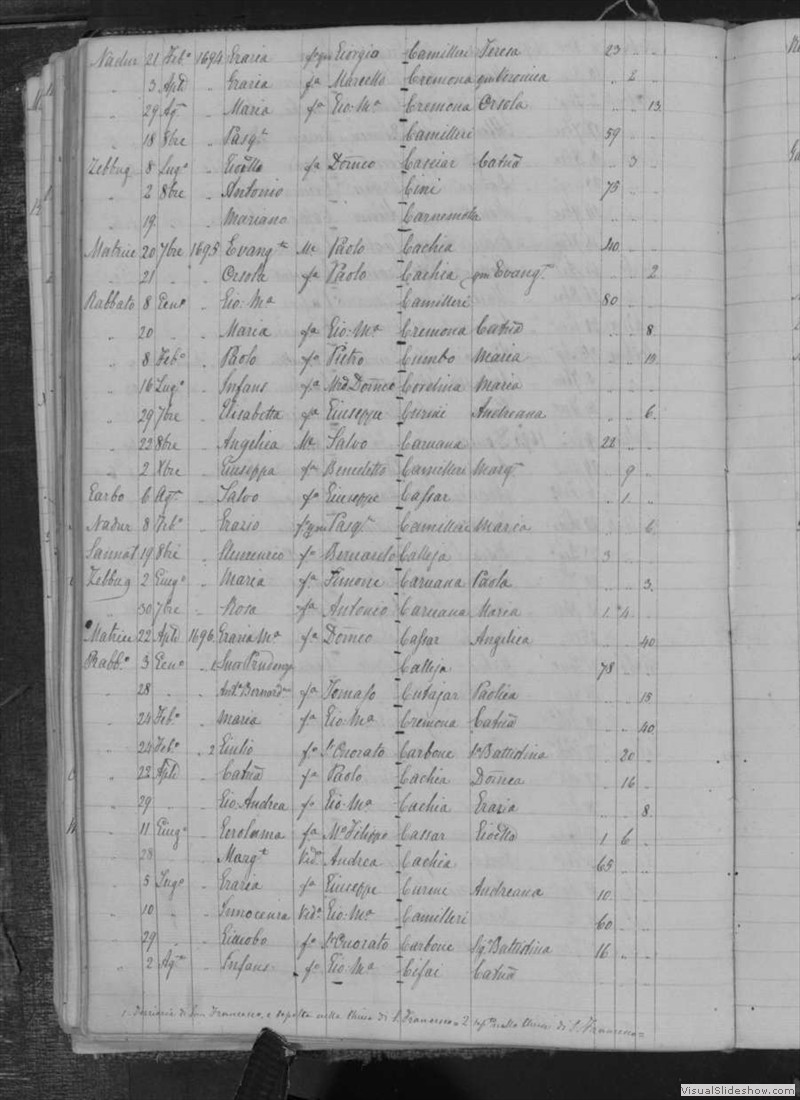 Nadur 21 Feb° 1694 Grazia fa qm Giorgia Camilleri Teresa 23 .. ..
" 3 Aple .. Grazia fa Marcello Cremona qm Veronica .. 2 ..
" 29 Ag° .. Maria fa Gio: Ma Cremona Orsola .. .. 13
" 18 8bre .. Pasqe Camilleri 59 .. ..
Zebbug 8 Lug° .. fa Domco Casciar Catna .. 3 ..
" 2 8bre .. Antonio Cini 75 .. ..
" 19 .. Mariano .. .. ..
Matrice 20 7bre 1695 Evangta Me Paolo Cachia 40 .. ..
" 21 .. Orsola fa Paolo Cachia qm Evangta .. .. 2
Rabbato 8 Gen° .. Gio: Ma Camilleri 80 .. ..
" 20 .. Maria fa Gio: Ma Cremona Catna .. .. 8
" 8 Feb° .. Paolo fo Pietro Cumbo Maria .. ..
" 16 Lug° .. Infans fo Domco Maria
" 29 7bre .. Elisabetta fa Giuseppe Curmi Andreana .. .. 6
" 22 8bre .. Angelica Me Salvo Caruana .. ..
" 2 Xbre .. Giuseppa fa Benedetto Camilleri Margta .. 9 ..
Garbo 6 Agt° .. Salvo fo Giuseppe Cassar .. 1 ..
Nadur 8 Feb° .. Grazio fo qm Pasqe Camilleri Maria .. .. 6
Sannat 19 8bre .. fa Bernardo Calleja 3 .. ..
Zebbug 2 Giug° .. Maria fa Simone Caruana Paola .. .. 3
" 30 7bre .. Rosa fa Antonio Caruana Maria 1 4 ..
Matrice 22 Aple 1696 Grazia Ma fa Domco Cassar Angelica .. .. 40
Rabb° 3 Gen° .. 1 Calleja 78 .. ..
" 28 .. fa Tomaso Cutajar Paolica .. ..
" 24 Feb° .. Maria fa Gio: Ma Cremona Catna .. .. 40
" 24 Feb° .. 2 Giulio fo Sr Onorato Carbone Sra Battistina .. 20 ..
" 22 Aple .. Catna fa Paolo Cachia Domca .. 16 ..
" 29 .. Gio Andrea fo Gio: Ma Cachia Grazia .. .. 8
" 11 Giug° .. Gerolama fa Mo Filippo Cassar 1 6 ..
" 28 .. Margta Vida Andrea Cachia 65 .. ..
" 5 Lug° .. Grazia fa Giuseppe Curmi Andreana 10 .. ..
" 10 .. Innocenza Vida Gio: Ma Camilleri 60 .. ..
" 29 .. Giacobo fo Sr Onorato Carbone Sga Battistina 16 .. ..
" 2 Agt° .. Infans fo Gio: Ma Cifai Catna
1. Terziaria di San Francesco, e sepolta nella Chiesa di S. Francesco = 2 nella Chiesa di S. Francesco =
VisualSlideshow.com